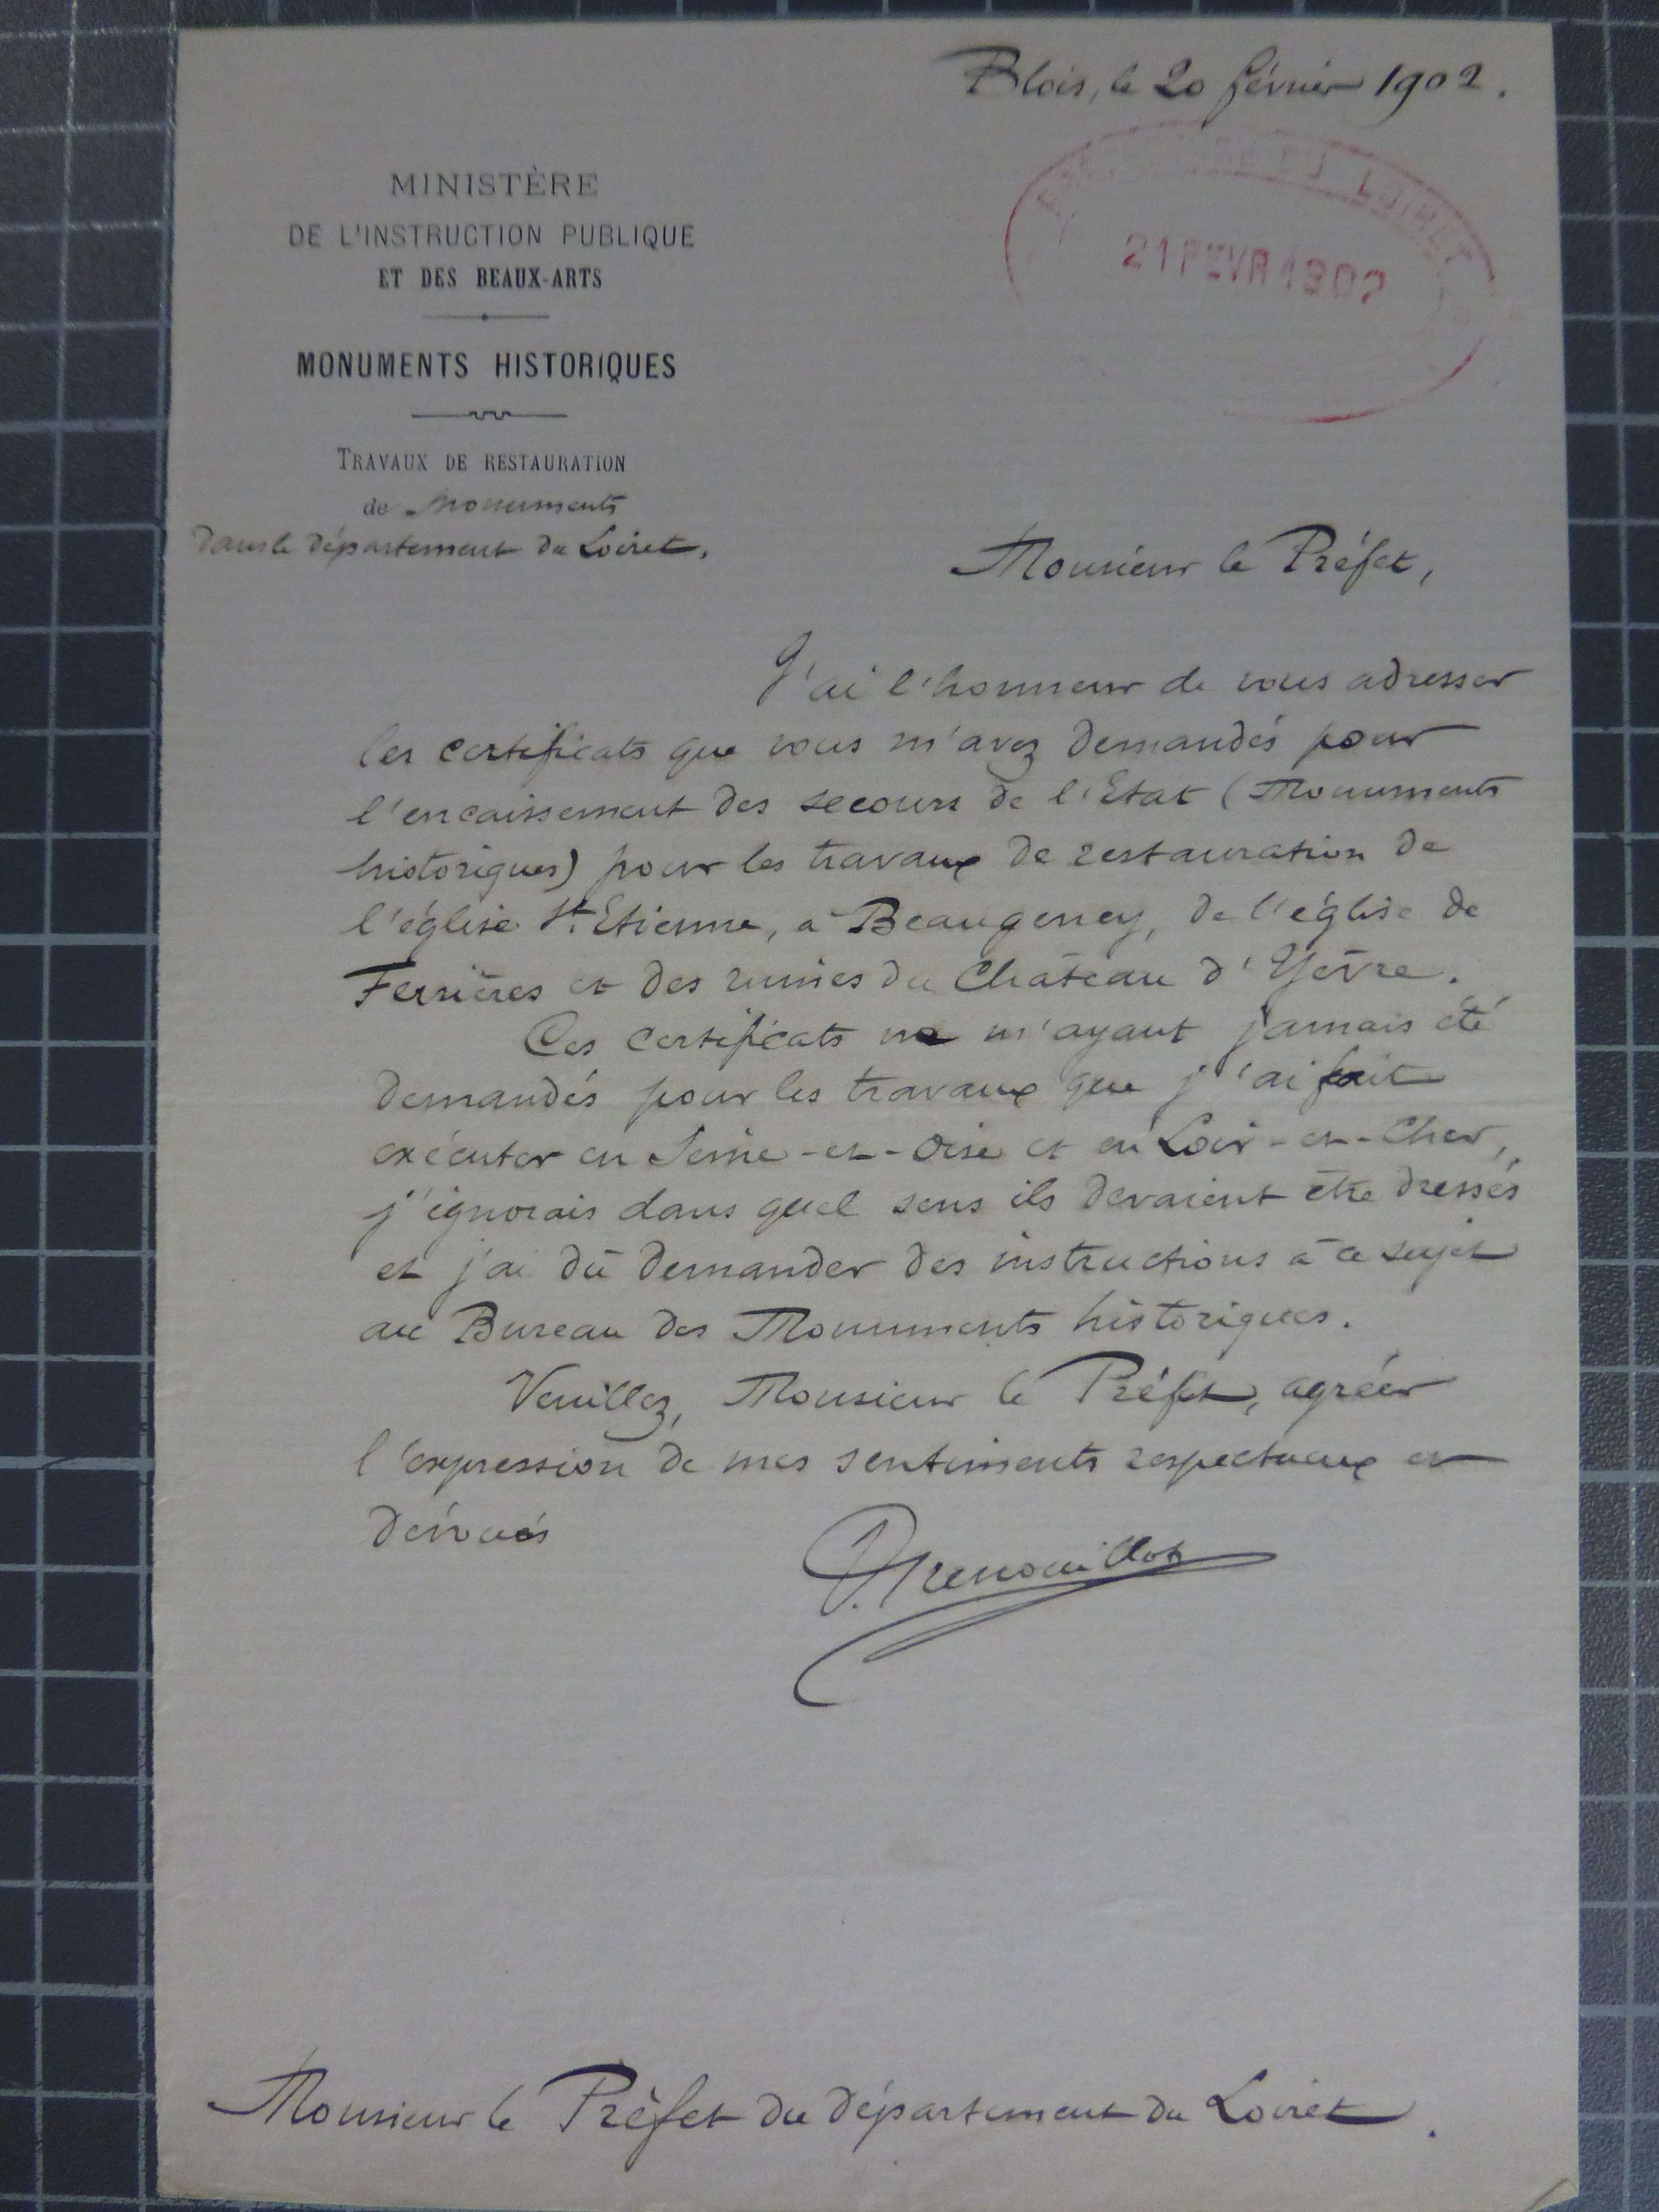 Blois, le 20 février 1902.
PRÉFECTURE DU LOIRET
21 FEVR 1902
MINISTÈRE
DE L'INSTRUCTION PUBLIQUE
ET DES BEAUX-ARTS
MONUMENTS HISTORIQUES
TRAVAUX DE RESTAURATION
de Monuments
dans le département du Loiret.
Monsieur le Préfet,
J'ai l'honneur de vous adresser
les certificats que vous m'avez demandés pour
l'encaissement des secours de l'Etat (Monuments
historiques) pour les travaux de restauration de
l'église St. Etienne, à Beaugency, de l'église de
Ferrières et des ruines du Château d'Yèvre.
Ces certificats ne m'ayant jamais été
demandés pour les travaux que j'ai fait
exécuter en Seine-et-Oise et en Loir-et-Cher,
j'ignorais dans quel sens ils devaient être dressés
et j'ai dû demander des instructions à ce sujet
au Bureau des Monuments historiques.
Veuillez, Monsieur le Préfet, agréer
l'expression de mes sentiments respectueux et
dévoués
Monsieur le Préfet du département du Loiret.